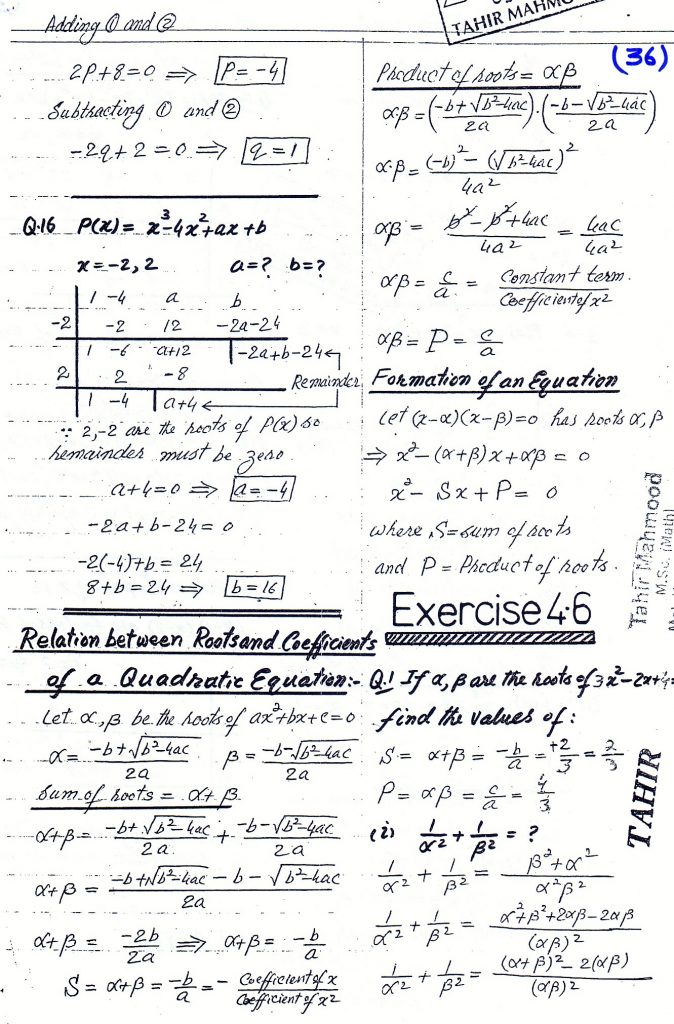 Adding ① and ②
2P+8=0 ⟹ P=-4
Subtracting ① and ②
-2q+2=0 ⟹ q=1
Q.16 P(x)= x³-4x²+ax+b
x=-2,2 a=? b=?
1 -4 a b
-2 -2 12 -2a-24
1 -6 a+12 -2a+b-24
2 2 -8 Remainder
1 -4 a+4
∵ 2,-2 are the roots of P(x) so
remainder must be zero.
a+4=0 ⟹ a=-4
-2a+b-24=0
-2(-4)+b=24
8+b=24 ⟹ b=16
Relation between Roots and Coefficients
of a Quadratic Equation:-
Let α,β be the roots of ax²+bx+c=0
α= (-b+√b²-4ac)/2a β= (-b-√b²-4ac)/2a
Sum of roots = α+β
α+β= (-b+√b²-4ac)/2a + (-b-√b²-4ac)/2a
α+β = (-b+√b²-4ac - b - √b²-4ac)/2a
α+β = -2b/2a ⟹ α+β= -b/a
S = α+β = -b/a = - Coefficient of x/Coefficient of x²
TAHIR MAHMO
(36)
Product of roots = αβ
αβ=((-b+√b²-4ac)/2a).((-b-√b²-4ac)/2a)
α.β= ((-b)²-(√b²-4ac)²)/4a²
αβ= (b²-b²+4ac)/4a² = 4ac/4a²
αβ= c/a = Constant term./Coefficient of x²
αβ= P= c/a
Formation of an Equation
Let (x-α)(x-β)=0 has roots α,β
⟹ x²-(α+β)x+αβ=0
x²- Sx+P= 0
where S=sum of roots
and P = Product of roots.
Exercise 4.6
Q.1 If α,β are the roots of 3x²-2x+4=
find the values of:
S= α+β= -b/a = +2/3 = 2/3
P= αβ = c/a = 4/3
(i) 1/α² + 1/β² = ?
1/α² + 1/β² = (β²+α²)/α²β²
1/α² + 1/β² = (α²+β²+2αβ-2αβ)/(αβ)²
1/α² + 1/β² = ((α+β)²-2(αβ))/(αβ)²
Tahir Mahmood
M.Sc. (Math)
TAHIR